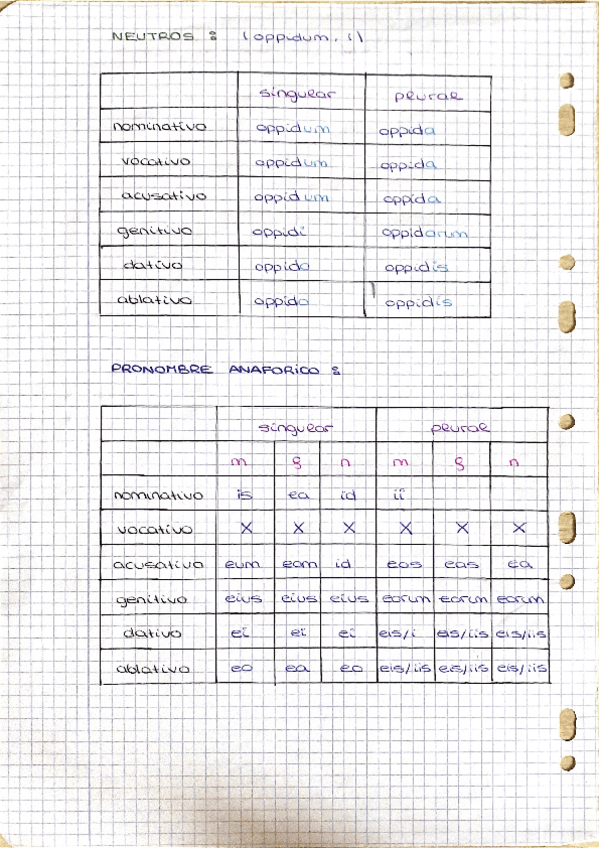 NEUTROS : (oppidum, i)
singular plural
nominativo oppidum oppida
vocativo oppidum oppida
acusativo oppidum oppida
genitivo oppidi oppidorum
dativo oppido oppidis
ablativo oppido oppidis
PRONOMBRE ANAFORICO :
singular plural
m f n m f n
nominativo is ea id ii
vocativo X X X X X X
acusativo eum eam id eos eas ea
genitivo eius eius eius eorum earum eorum
dativo ei ei ei eis/i eis/iis eis/iis
ablativo eo ea eo eis/iis eis/iis eis/iis